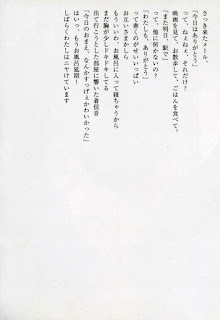 さっき来たメール、
「今日はありがとう」
って、ねぇえ、それだけ?
映画を見て、お散歩して、ごはんを食べて。
「また明日、駅で」
って、他に何かないの?
「わたしも、ありがとう」
って書くのがせいいっぱい
お互いさまかしら
もういいわ、お風呂に入って寝ちゃうから
まだ胸が少しドキドキしてる
出て行こうとした部屋に響いた着信音
「今日のおまえ、なんかすっげぇかわいかった」
はいっ、もうお風呂延期!
しばらくわたしはニヤけています